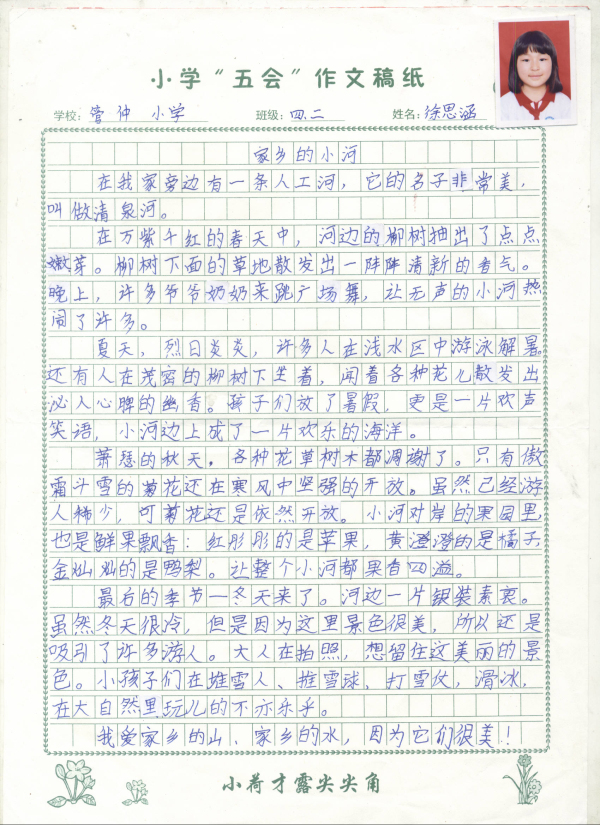 小学“五会”作文稿纸
学校：管仲 小学 班级：四.二 姓名：徐思涵
家乡的小河
在我家旁边有一条人工河，它的名子非常美，
叫做清泉河。
在万紫千红的春天中，河边的柳树抽出了点点
嫩芽。柳树下面的草地散发出一阵阵清新的香气。
晚上，许多爷爷奶奶来跳广场舞，让无声的小河热
闹了许多。
夏天，烈日炎炎，许多人在浅水区中游泳解暑。
还有人在茂密的柳树下坐着，闻着各种花儿散发出
沁人心脾的幽香。孩子们放了暑假，更是一片欢声
笑语，小河边上成了一片欢乐的海洋。
萧瑟的秋天，各种花草树木都凋谢了。只有傲
霜斗雪的菊花还在寒风中坚强的开放。虽然已经游
人稀少，可菊花还是依然开放。小河对岸的果园里
也是鲜果飘香：红彤彤的是苹果，黄澄澄的是橘子，
金灿灿的是鸭梨。让整个小河都果香四溢。
最后的季节—冬天来了。河边一片银装素裹。
虽然冬天很冷，但是因为这里景色很美，所以还是
吸引了许多游人。大人在拍照，想留住这美丽的景
色。小孩子们在堆雪人、推雪球、打雪仗，滑冰，
在大自然里玩儿的不亦乐乎。
我爱家乡的山、家乡的水，因为它们很美！
小荷才露尖尖角